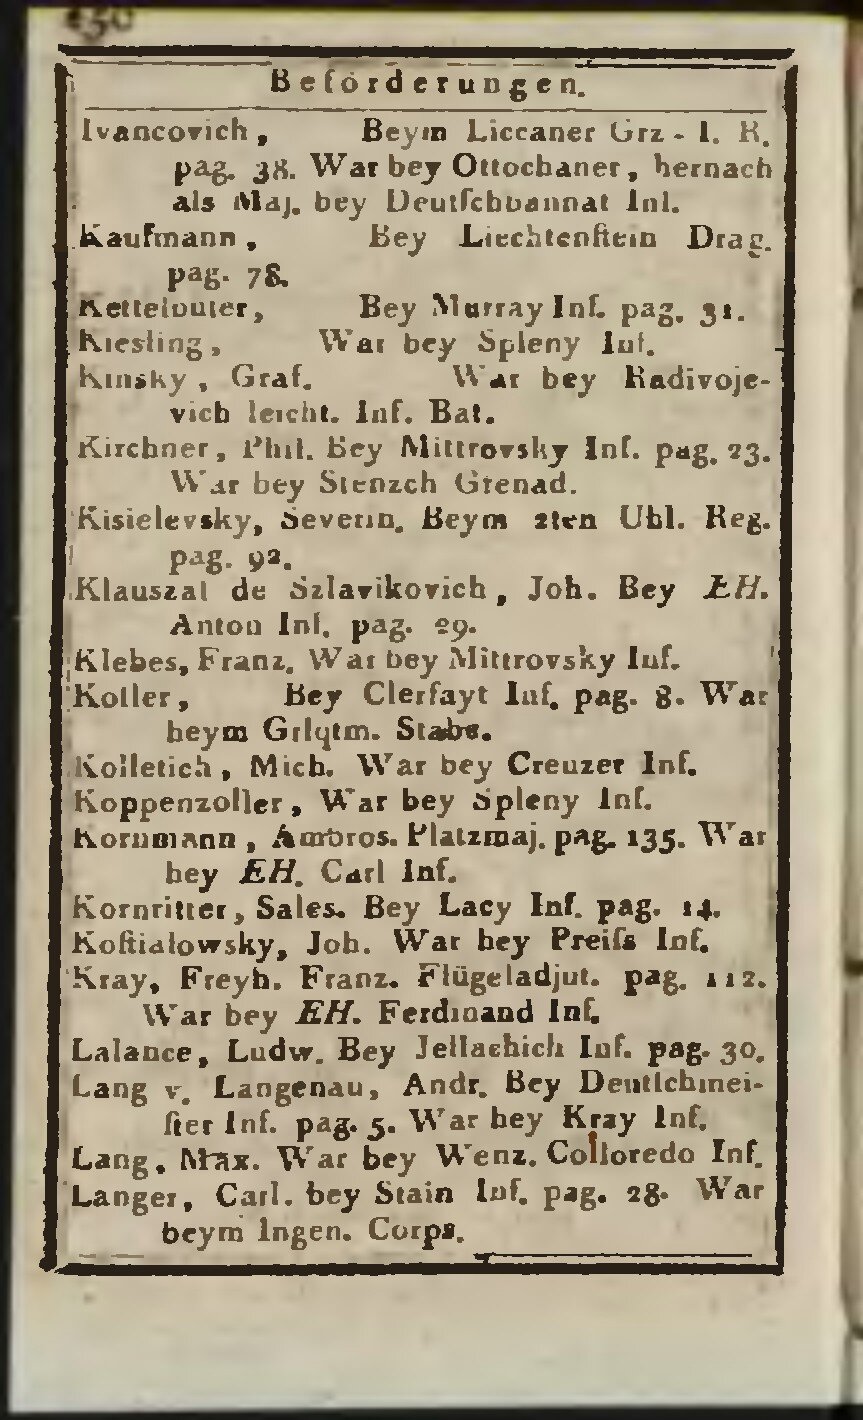 Beförderungen.
Ivancovich, Beym Liccaner Grz-I. R.
pag. 38. War bey Ottochaner, hernach
als Maj. bey Deutſchbannat Inf.
Kaufmann, Bey Liechtenſtein Drag.
pag. 78.
Kettelbuter, Bey Murray Inf. pag. 31.
Kiesling, War bey Spleny Inf.
Kinsky, Graf. War bey Radivoje-
vich leicht. Inf. Bat.
Kirchner, Phil. Bey Mittrovsky Inf. pag. 23.
War bey Stenzch Grenad.
Kisielevsky, Severin. Beym 2ten Uhl. Reg.
pag. 92.
Klauszal de Szlavikovich, Joh. Bey EH.
Anton Inf. pag. 29.
Klebes, Franz. War bey Mittrovsky Inf.
Koller, Bey Clerfayt Inf. pag. 8. War
beym Grlqtm. Stabe.
Kolletich, Mich. War bey Creuzer Inf.
Koppenzoller, War bey Spleny Inf.
Kornmann, Ambros. Platzmaj. pag. 135. War
bey EH. Carl Inf.
Kornritter, Sales. Bey Lacy Inf. pag. 14.
Koſtialowsky, Joh. War bey Preiſs Inf.
Kray, Freyh. Franz. Flügeladjut. pag. 112.
War bey EH. Ferdinand Inf.
Lalance, Ludw. Bey Jellachich Inf. pag. 30.
Lang v. Langenau, Andr. Bey Deutſchmei-
ſter Inf. pag. 5. War bey Kray Inf.
Lang, Max. War bey Wenz. Colloredo Inf.
Langer, Carl. bey Stain Inf. pag. 28. War
beym Ingen. Corps.